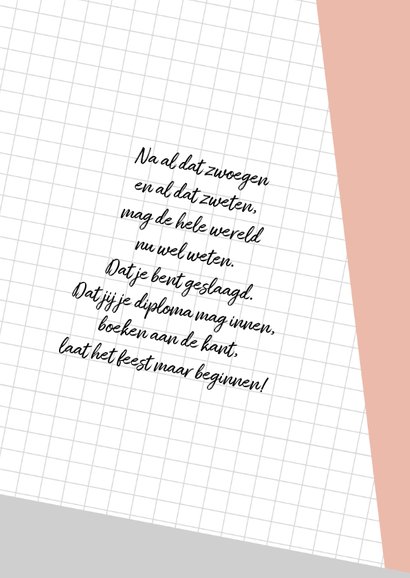 Na al dat zwoegen
en al dat zweten,
mag de hele wereld
nu wel weten.
Dat je bent geslaagd.
Dat jij je diploma mag innen,
boeken aan de kant,
laat het feest maar beginnen!